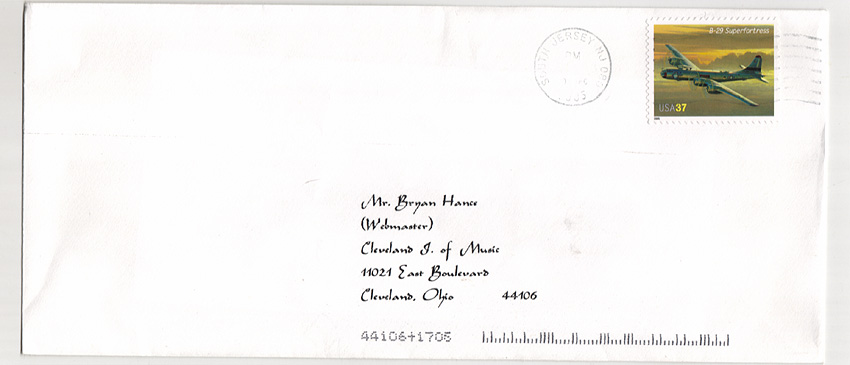 B-29 Superfortress
SOUTH JERSEY NJ
PM
USA37
Mr. Bryan Hance
(Webmaster)
Cleveland I. of Music
11021 East Boulevard
Cleveland, Ohio 44106
44106+1705